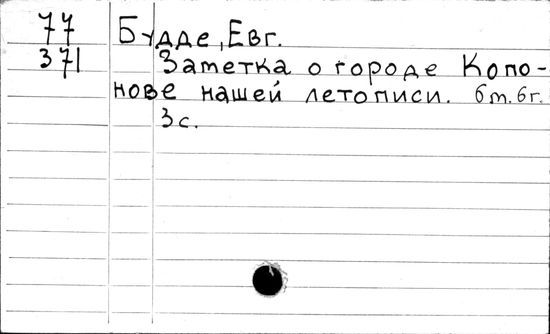 77
371
Будде, Евг.
Заметка о городе Копо-
нове нашей летописи. б.м. б.г.
3 с.